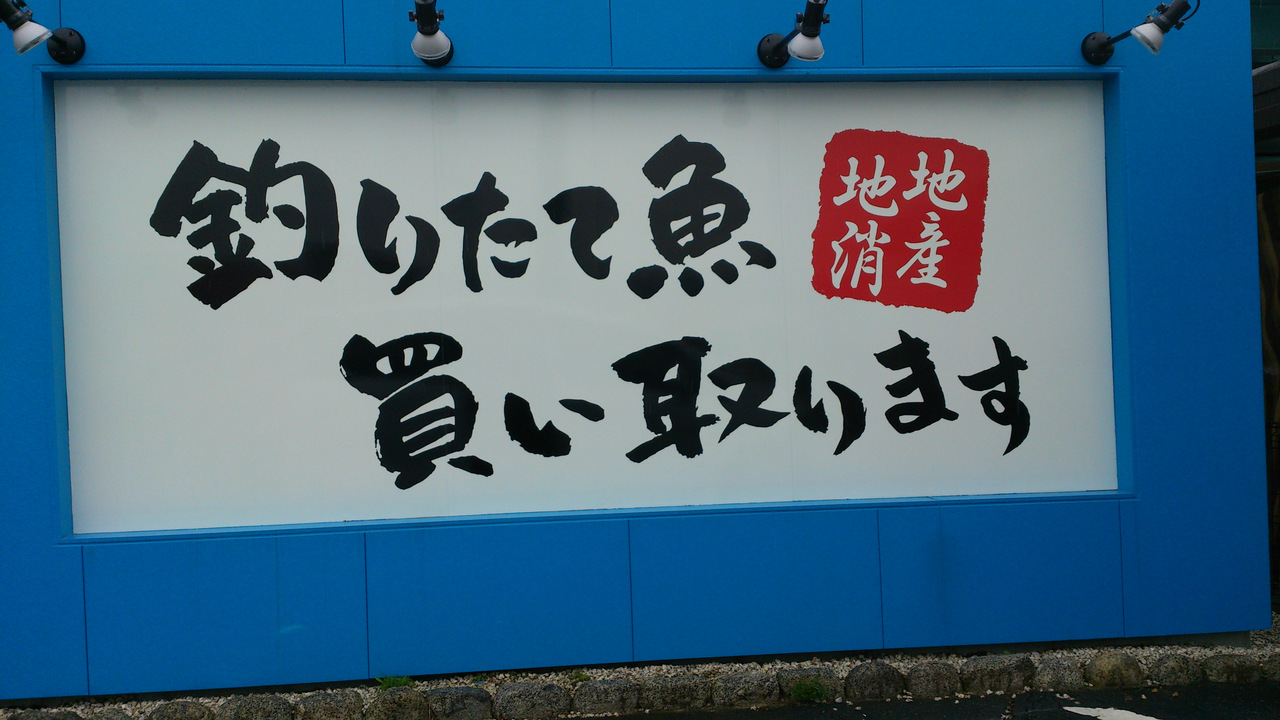 釣りたて魚
買い取ります
地産
地消